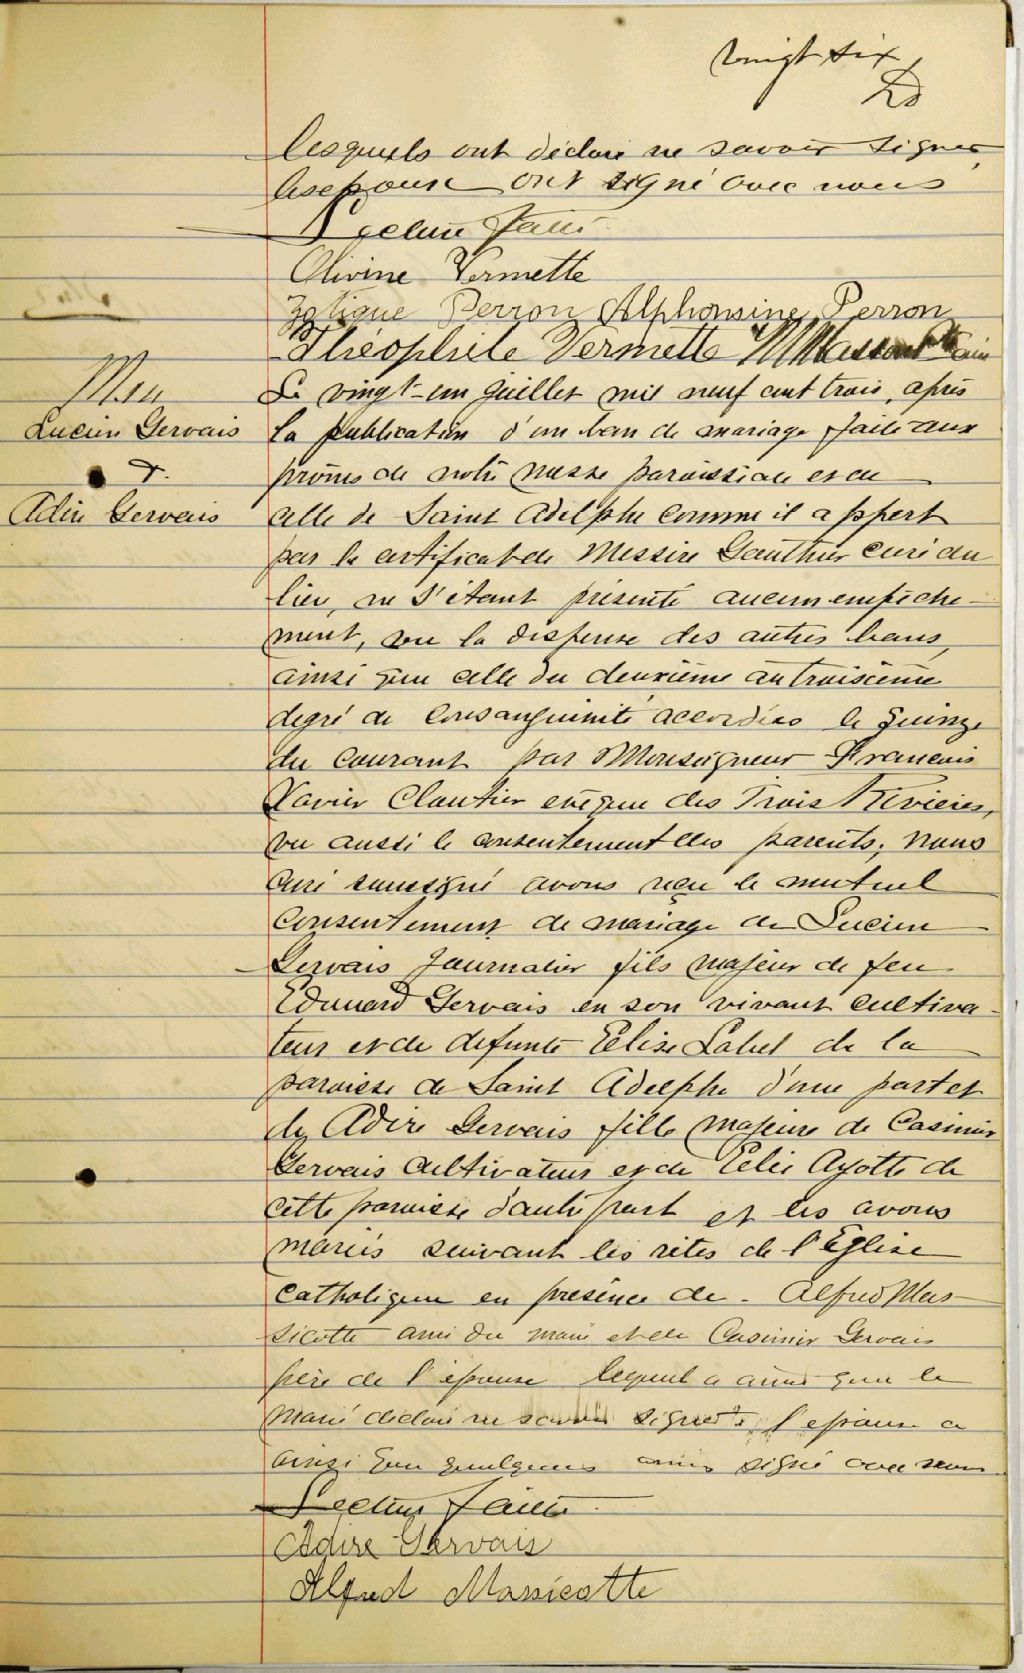 vingt six
lesquels ont déclaré ne savoir signer,
les epoux ont signé avec nous
Lecture faite
Olivine Vermette
Zotique Perron Alphonsine Perron
Théophile Vermette
M
Lucien Gervais
&.
Adire Gervais
Le vingt-un juillet mil neuf cent trois, après
la publication d'un ban de mariage faite aux
prônes de notre messe paroissiale et en
celle de Saint Adelphe comme il appert
par le certificat de Messire Gauthier curé du
lieu, ne s'étant présenté aucun empêche-
ment, vu la dispense des autres bans,
ainsi que celle du deuxième au troisième
degré de consanguinité accordées le quinze
du courant par Monseigneur François
Xavier Cloutier evêque des Trois Rivieres,
vu aussi le consentement des parents; nous
curé soussigné avons reçu le mutuel
consentement de mariage de Lucien
Gervais Journalier fils majeur de feu
Edouard Gervais en son vivant cultiva-
teur et de defunte Elise Label de la
paroisse de Saint Adelphe d'une part et
de Adire Gervais fille majeure de Casimir
Gervais cultivateur et de Célie Ayotte de
cette paroisse d'autre part et les avons
mariés suivant les rites de l'Eglise
Catholique en présence de - Alfred Mas-
sicotte ami du marié et de Casimir Gervais
père de l'épouse lequel a ainsi que le
marié déclaré ne savoir signer, l'epouse a
ainsi que quelques amis signé avec nous
Lecture faite
Adire Gervais
Alfred Massicotte